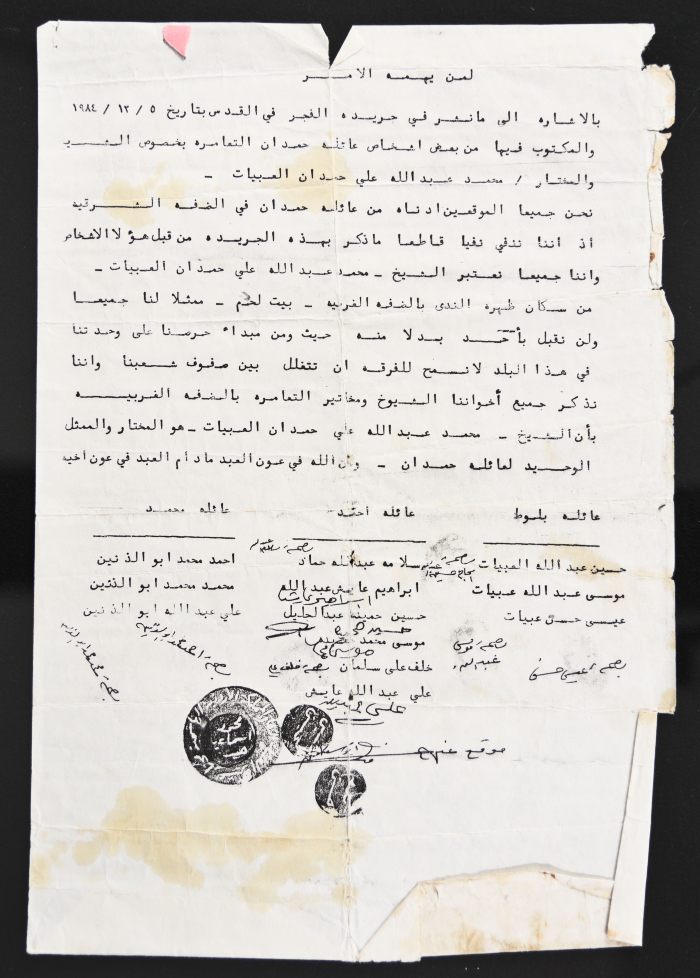 لمن يهمه الامر
بالاشاره الى مانشر في جريده الفجر في القدس بتاريخ ٥ / ١٢ / ١٩٨٤
والمكتوب فيها من بعض اشخاص عائله حمدان التعامره بخصوص الشيخ
والمختار / محمد عبدالله علي حمدان العبيات -
نحن جميعا الموقعين ادناه من عائله حمدان في الضفه الشرقيه
اذ اننا ننفي نفيا قاطعا ماذكر بهذه الجريده من قبل هؤلا الاشخاص
واننا جميعا نعتبر الشيخ - محمد عبدالله علي حمدان العبيات -
من سكان ظهره الندى بالضفه الغربيه - بيت لحم - ممثلا لنا جميعا
ولن نقبل بأحد بدلا منه حيث ومن مبداء حرصنا على وحدتنا
في هذا البلد لانسمح للفرقه ان تتغلل بين صفوف شعبنا واننا
نذكر جميع أخواننا الشيوخ ومخاتير التعامره بالضفه الغربيه
بأن الشيخ - محمد عبدالله علي حمدان العبيات - هو المختار والممثل
الوحيد لعائله حمدان - وان الله في عون العبد مادام العبد في عون اخيه
عائله بلوط عائله احمد عائله محمد
حسين عبد الله العبيات سلامه عبدالله حماد احمد محمد ابو الذنين
موسى عبد الله عبيات ابراهيم عايش عبدالله محمد محمد ابو الذنين
عيسى حسن عبيات حسين حمينه عبدالجليل علي عبد الله ابو الذنين
موسى محمد
خلف علي سلمان
علي عبد الله عايش
بصمة عيسى حسن
بصمة موسى
بصمة خلف علي
بصمة احمد محمد ابو الذنين
موقع عنهم